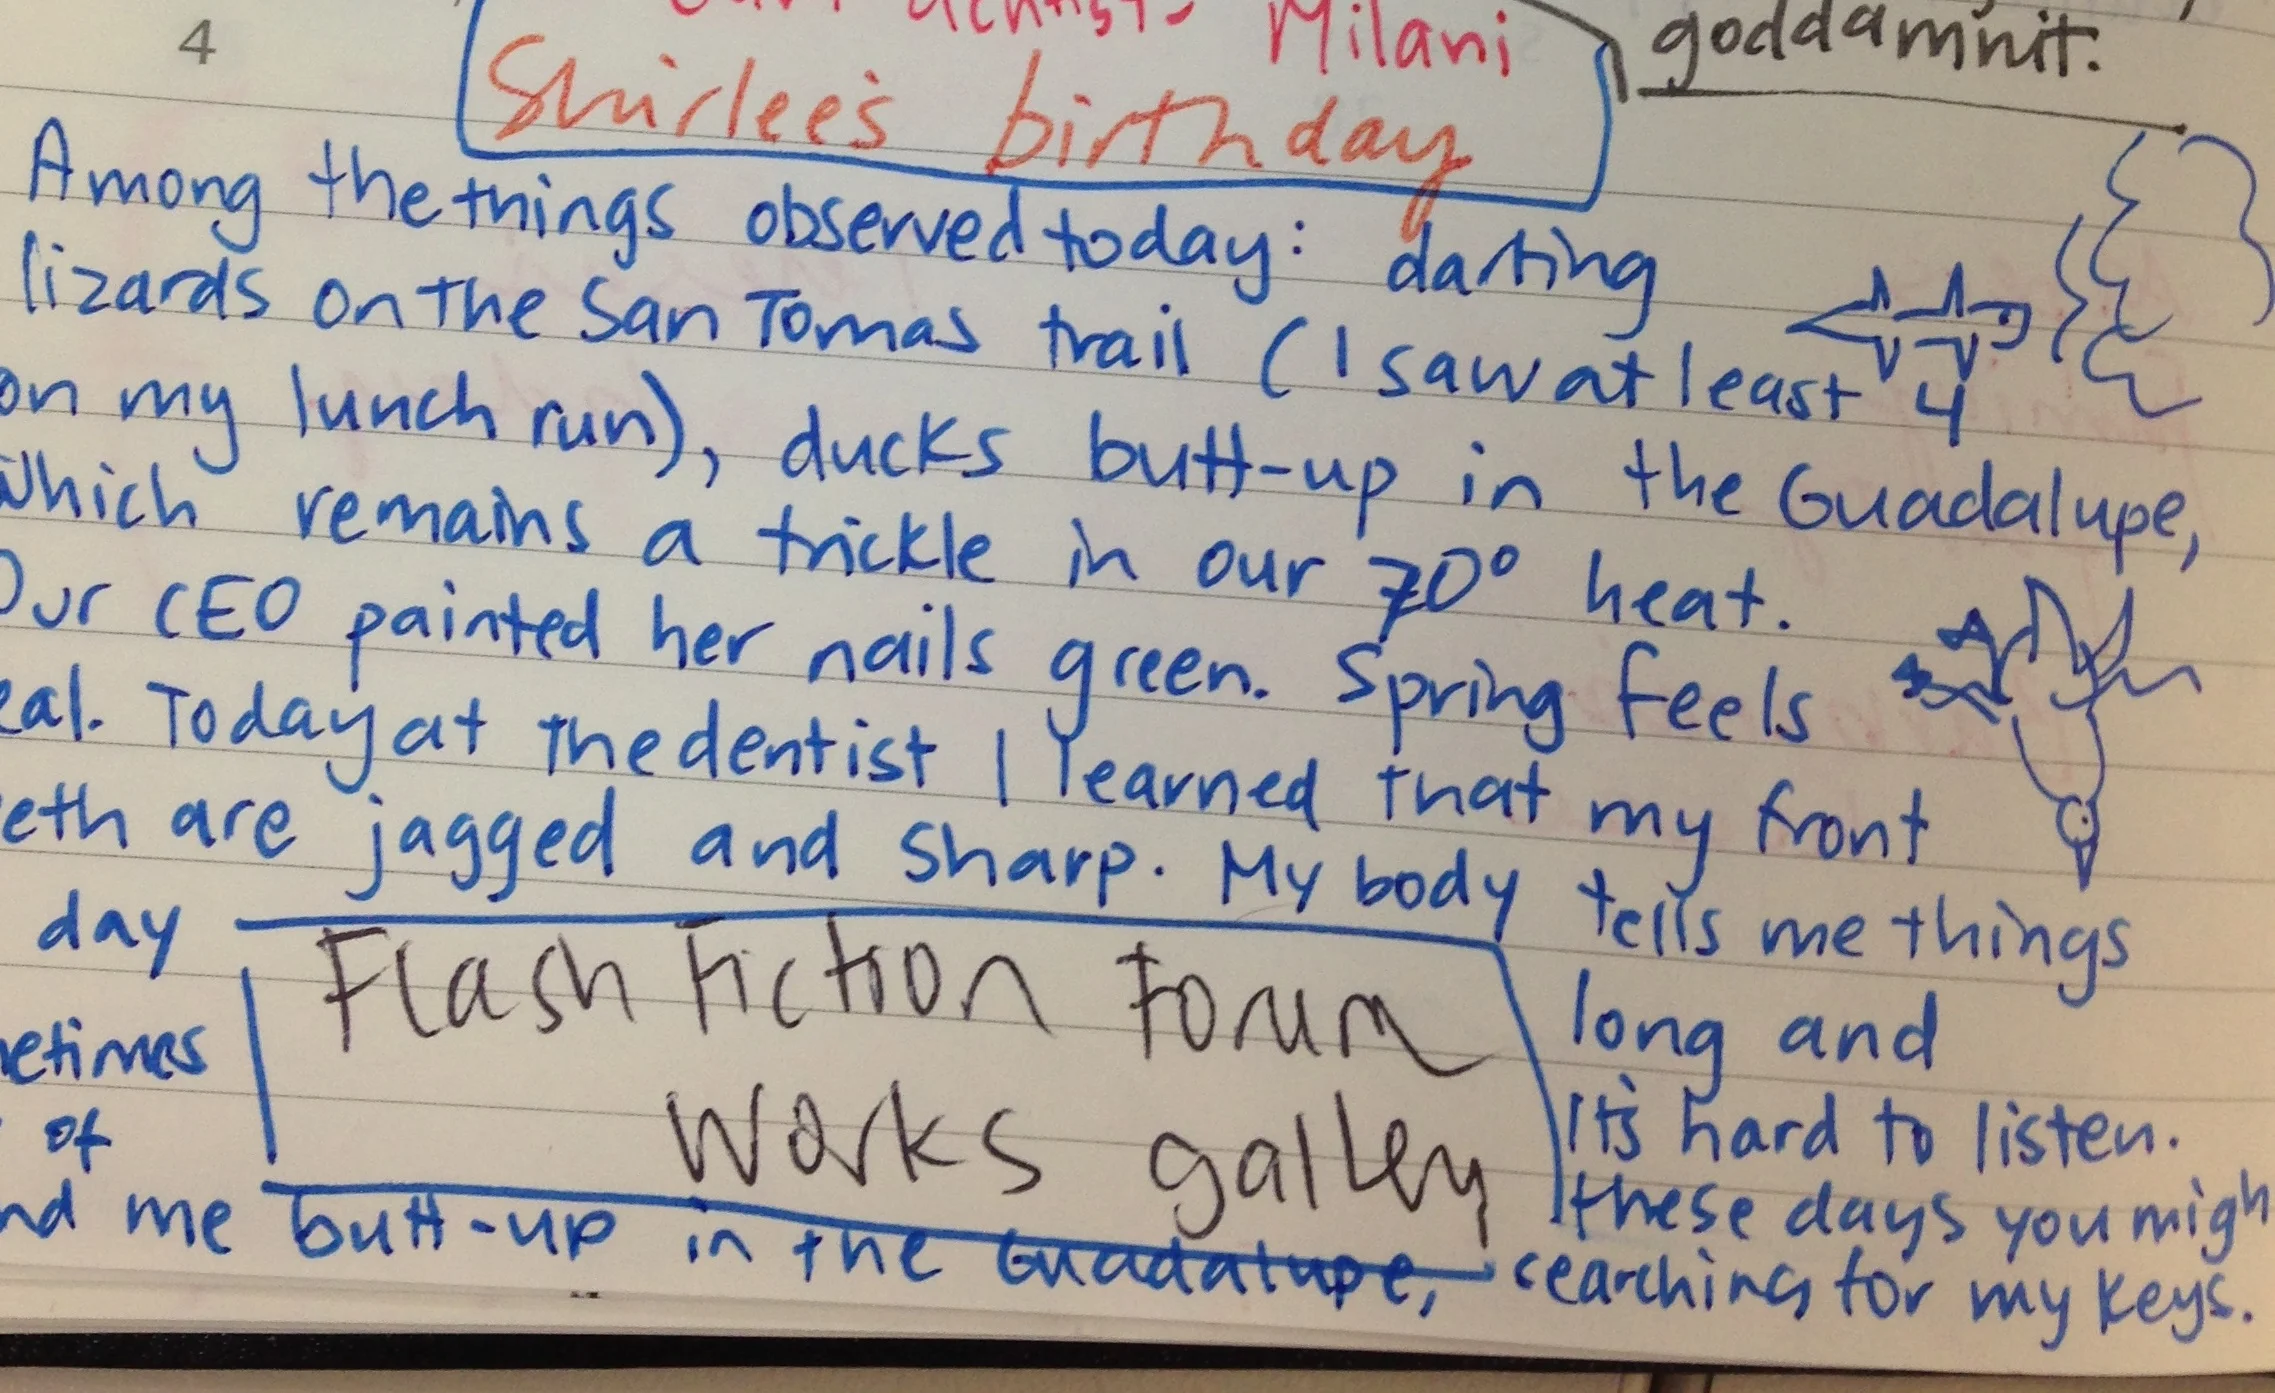 4
dentist - Milani
goddamnit.
Shirlee's birthday
Among the things observed today: darting
lizards on the San Tomas trail (I saw at least 4
on my lunch run), ducks butt-up in the Guadalupe,
which remains a trickle in our 70° heat.
Our CEO painted her nails green. Spring feels
eal. Today at the dentist I learned that my front
eeth are jagged and sharp. My body tells me things
day long and
Flash Fiction Forum
etimes it's hard to listen.
Works galley
of these days you migh
nd me butt-up in the Guadalupe, searching for my keys.